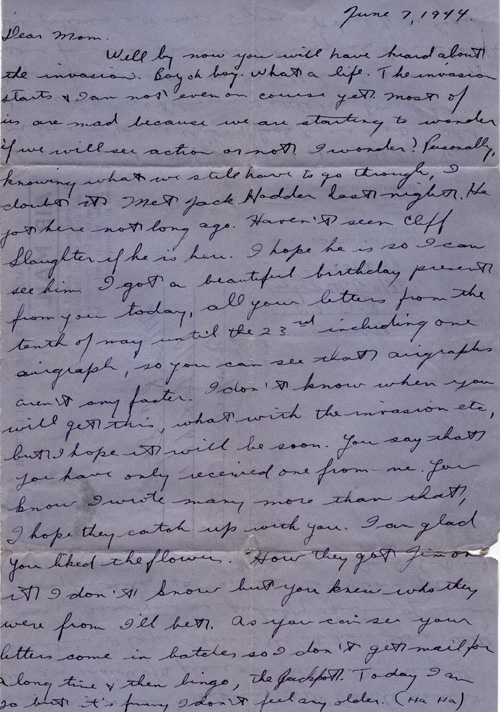 June 7, 1944.
Dear Mom.
Well by now you will have heard about
the invasion. Boy oh boy. What a life. The invasion
starts & I am not even on course yet. Most of
us are mad because we are starting to wonder
if we will see action or not. I wonder? Personally,
knowing what we still have to go through, I
doubt it. Met Jack Hodder last night. He
got here not long ago. Haven't seen Cliff
Slaughter if he is here. I hope he is so I can
see him. I got a beautiful birthday present
from you today, all your letters from the
tenth of may until the 23rd including one
airgraph, so you can see that airgraphs
aren't any faster. I don't know when you
will get this, what with the invasion etc,
but I hope it will be soon. You say that
you have only received one from me. You
know I wrote many more than that,
I hope they catch up with you. I am glad
you liked the flowers. How they got Jim on
it I don't know but you knew who they
were from I'll bet. As you can see your
letters come in batches so I don't get mail for
a long time & then bingo, the Jackpot. Today I am
20 but it's funny I don't feel any older. (Ha Ha)